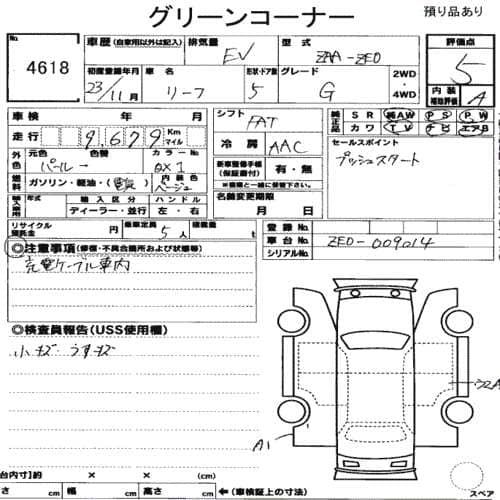 グリーンコーナー 預り品あり
No. 4618
車歴 (自家用以外は記入) 排気量 EV 型式 ZAA-ZE0 評価点 5
初度登録年月 23/11月 車名 リーフ 形状・ドア数 5 グレード G 2WD・4WD 内装補助評価 A
車検 年 月 シフト FAT 純正品 SR 純AW PS PW
カワ TV ナビ エアB
走行 9,679 Km マイル 冷房 AAC セールスポイント
外色 元色 パール 色替 カラーNo. QX1 新車整備手帳(保証書付) 有・無 プッシュスタート
燃料 ガソリン・軽油・(電気) 内装色 ベージュ ※車書と一緒に保管下さい。
輸入車用 年式 輸入区分 ディーラー・並行 ハンドル 左・右 名義変更期限 月 日
リサイクル預託金 乗車定員 5人 積載量 t 登録No.
車台No. ZE0-009014
シリアルNo.
◎注意事項(修復・不具合箇所および状態等)
充電ケーブル車内
◎検査員報告(USS使用欄)
小キズ うすキズ
A1
台内寸)約 × × (cm)
さ cm 幅 cm 高さ cm ←(車検証上の寸法)
スペア